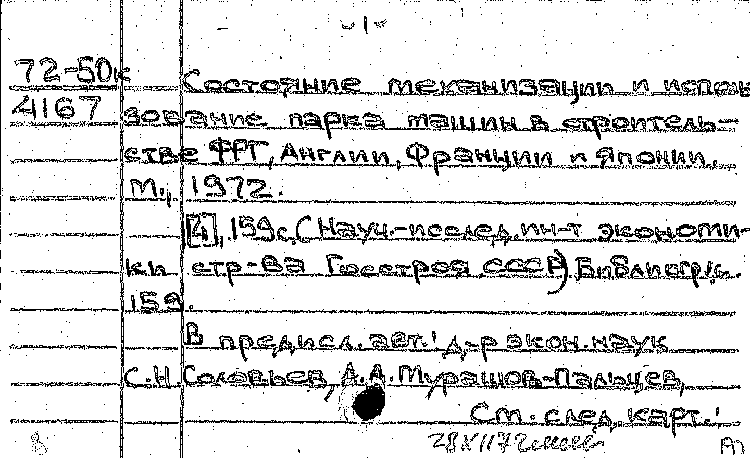 -1-
72-50к Состояние механизации и исполь
4167 зование парка машин в строитель-
стве ФРГ, Англии, Франции и Японии.
М., 1972.
[4], 159 с. (Науч.-исслед. ин-т экономи-
ки стр-ва Госстроя СССР) Библиогр.: с.
159.
В предисл. авт.: д-р экон. наук
С.Н. Соловьев, А.А. Мурашов-Пальцев,
См. след. карт.!